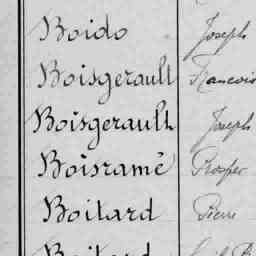 Boido Joseph
Boisgerault Francois
Boisgerault Joseph
Boisramé Prosper
Boitard Pierre
Boitard